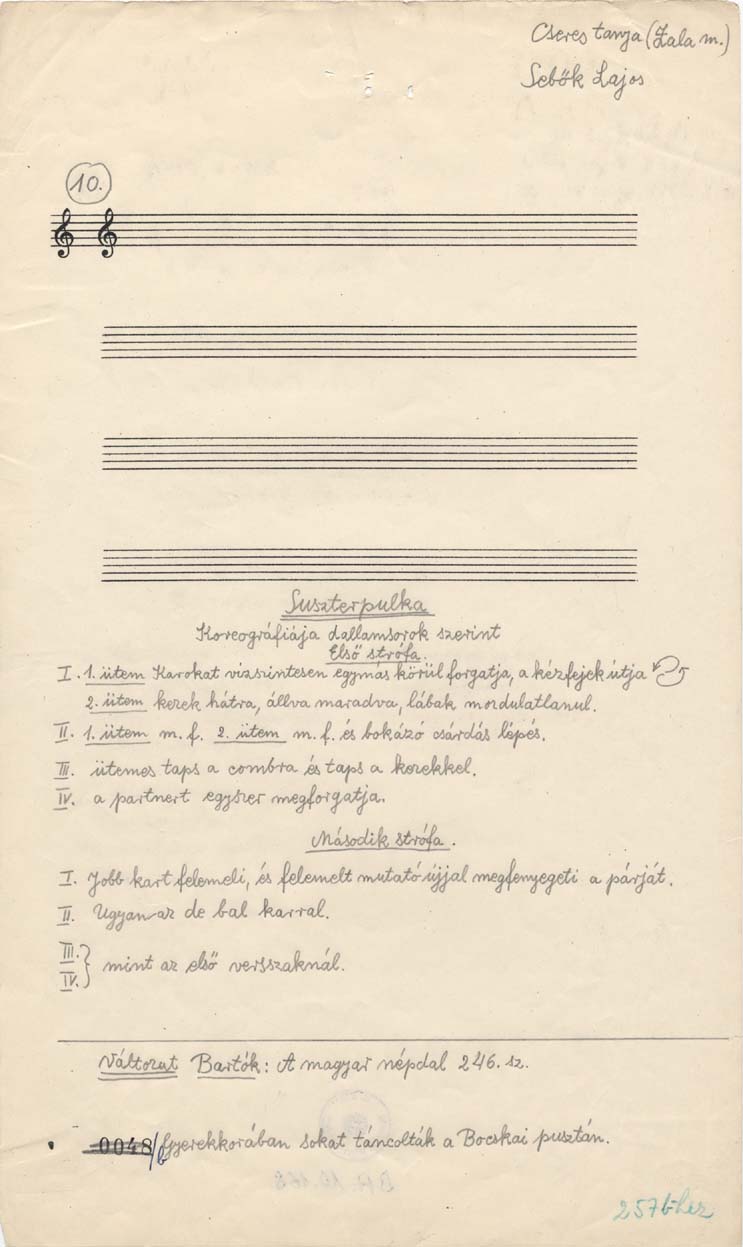 Cseres tanya (Zala m.)
Sebők Lajos
10.
Suszterpulka
Koreográfiája dallamsorok szerint
Első strófa.
I. 1. ütem Karokat vizszintesen egymás körül forgatja, a kézfejek útja
2. ütem kezek hátra, állva maradva, lábak mozdulatlanul.
II. 1. ütem m. f. 2. ütem m. f. és bokázó csárdás lépés.
III. ütemes taps a combra és taps a kezekkel.
IV. a partnert egyszer megforgatja.
Második strófa.
I. Jobb kart felemeli, és felemelt mutató újjal megfenyegeti a párját.
II. Ugyanaz de bal karral.
III.
IV. } mint az első versszaknál.
Változat Bartók: A magyar népdal 246. sz.
0048/b Gyerekkorában sokat táncolták a Bocskai pusztán.
257b-hez